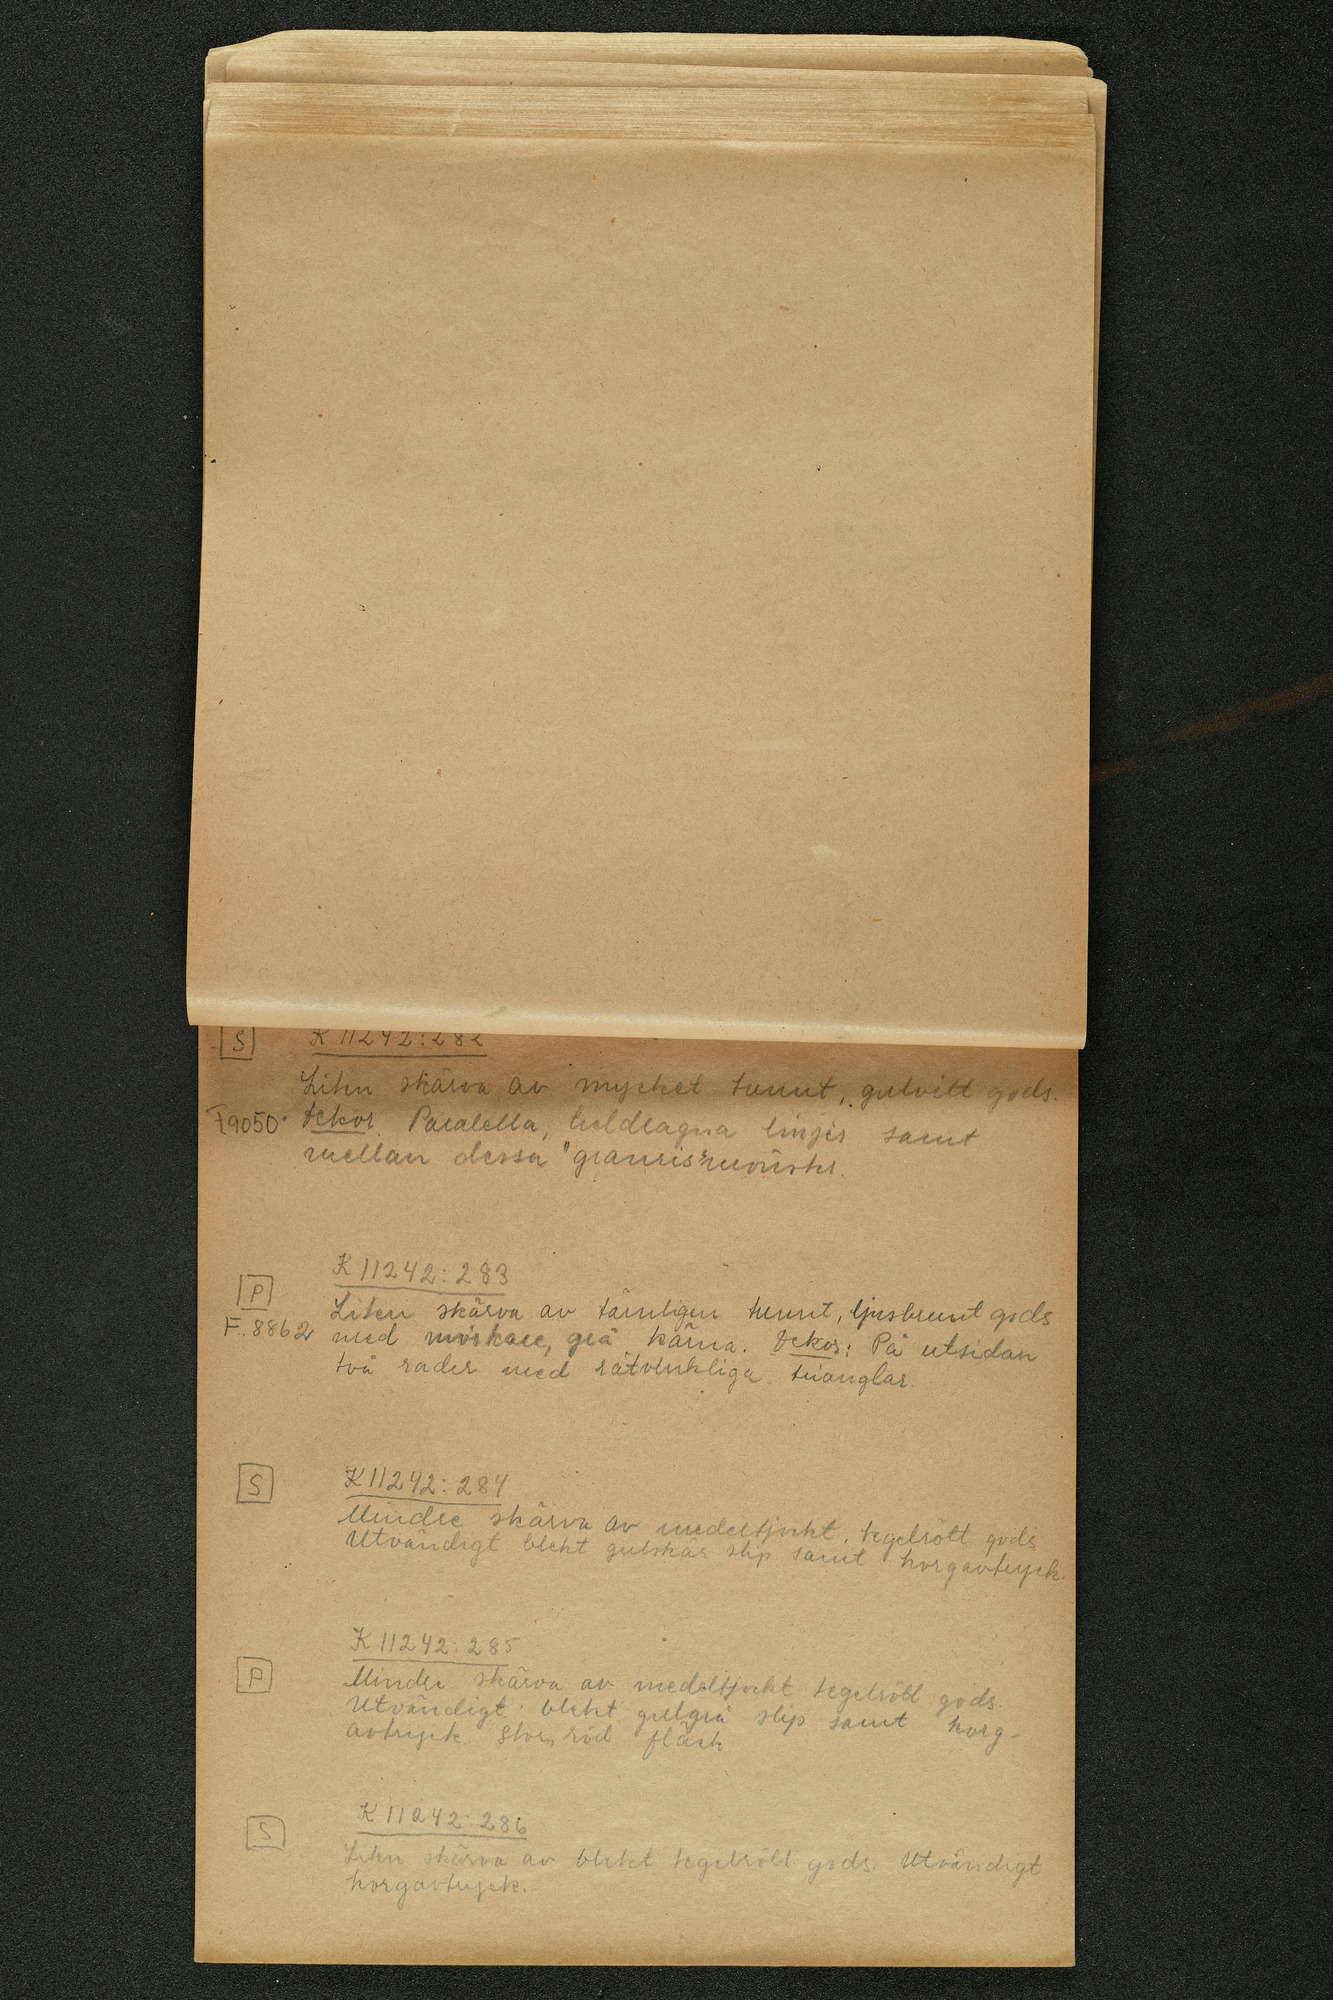 S K 11242:282
Liten skärva av mycket tunnt, gulvitt gods.
F9050. Dekor. Paralella, heldragna linjer samt
mellan dessa "granris"mönster.
P K 11242:283
Liten skärva av tämligen tunnt, ljusbrunt gods
F. 8862 med mörkare, grå kärna. Dekor: På utsidan
två rader med rätvinkliga trianglar.
S K 11242:284
Mindre skärva av medeltjockt, tegelrött gods
Utvändigt blekt gulskär slip samt korgavtryck.
P K 11242:285
Mindre skärva av medeltjockt tegelrött gods.
Utvändigt blekt gulgrå slip samt korg-
avtryck. Stor, röd fläck
S K 11242:286
Liten skärva av blekt tegelrött gods. Utvändigt
korgavtryck.